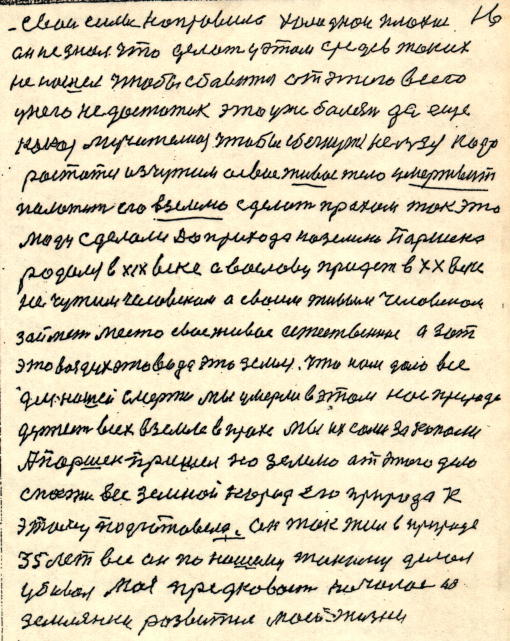 16
- свои силы направил холодной плохие
он не знал что делать у этом средев таких
не пошел чтобы сбавится от этого всего
у него недостаток это уже болезн да еще
какая мучителная чтобы сбегнут нелзя надо
растатся
свое живое тело умертвит
положит его в землю сделат прахом так это
люди сделали до прихода на землю Паршека
родился в XIX веке а его слову придет в XX веке
не чужим человеком а своим живым человеком
займет место свое живое естественное а зат
это воздух это вода это земля. Что нам дало все
для нашей смерти мы умерли в этом нас природа
держит всех в земле в прахе мы их сами закопали
А Паршек пришел на землю от этого дела
спасти все земной народ его природа к
этому подготовела, он так жил в природе
35 лет все он по нашему такому делал
убивал Моя
начало
землянки развития моей жизни